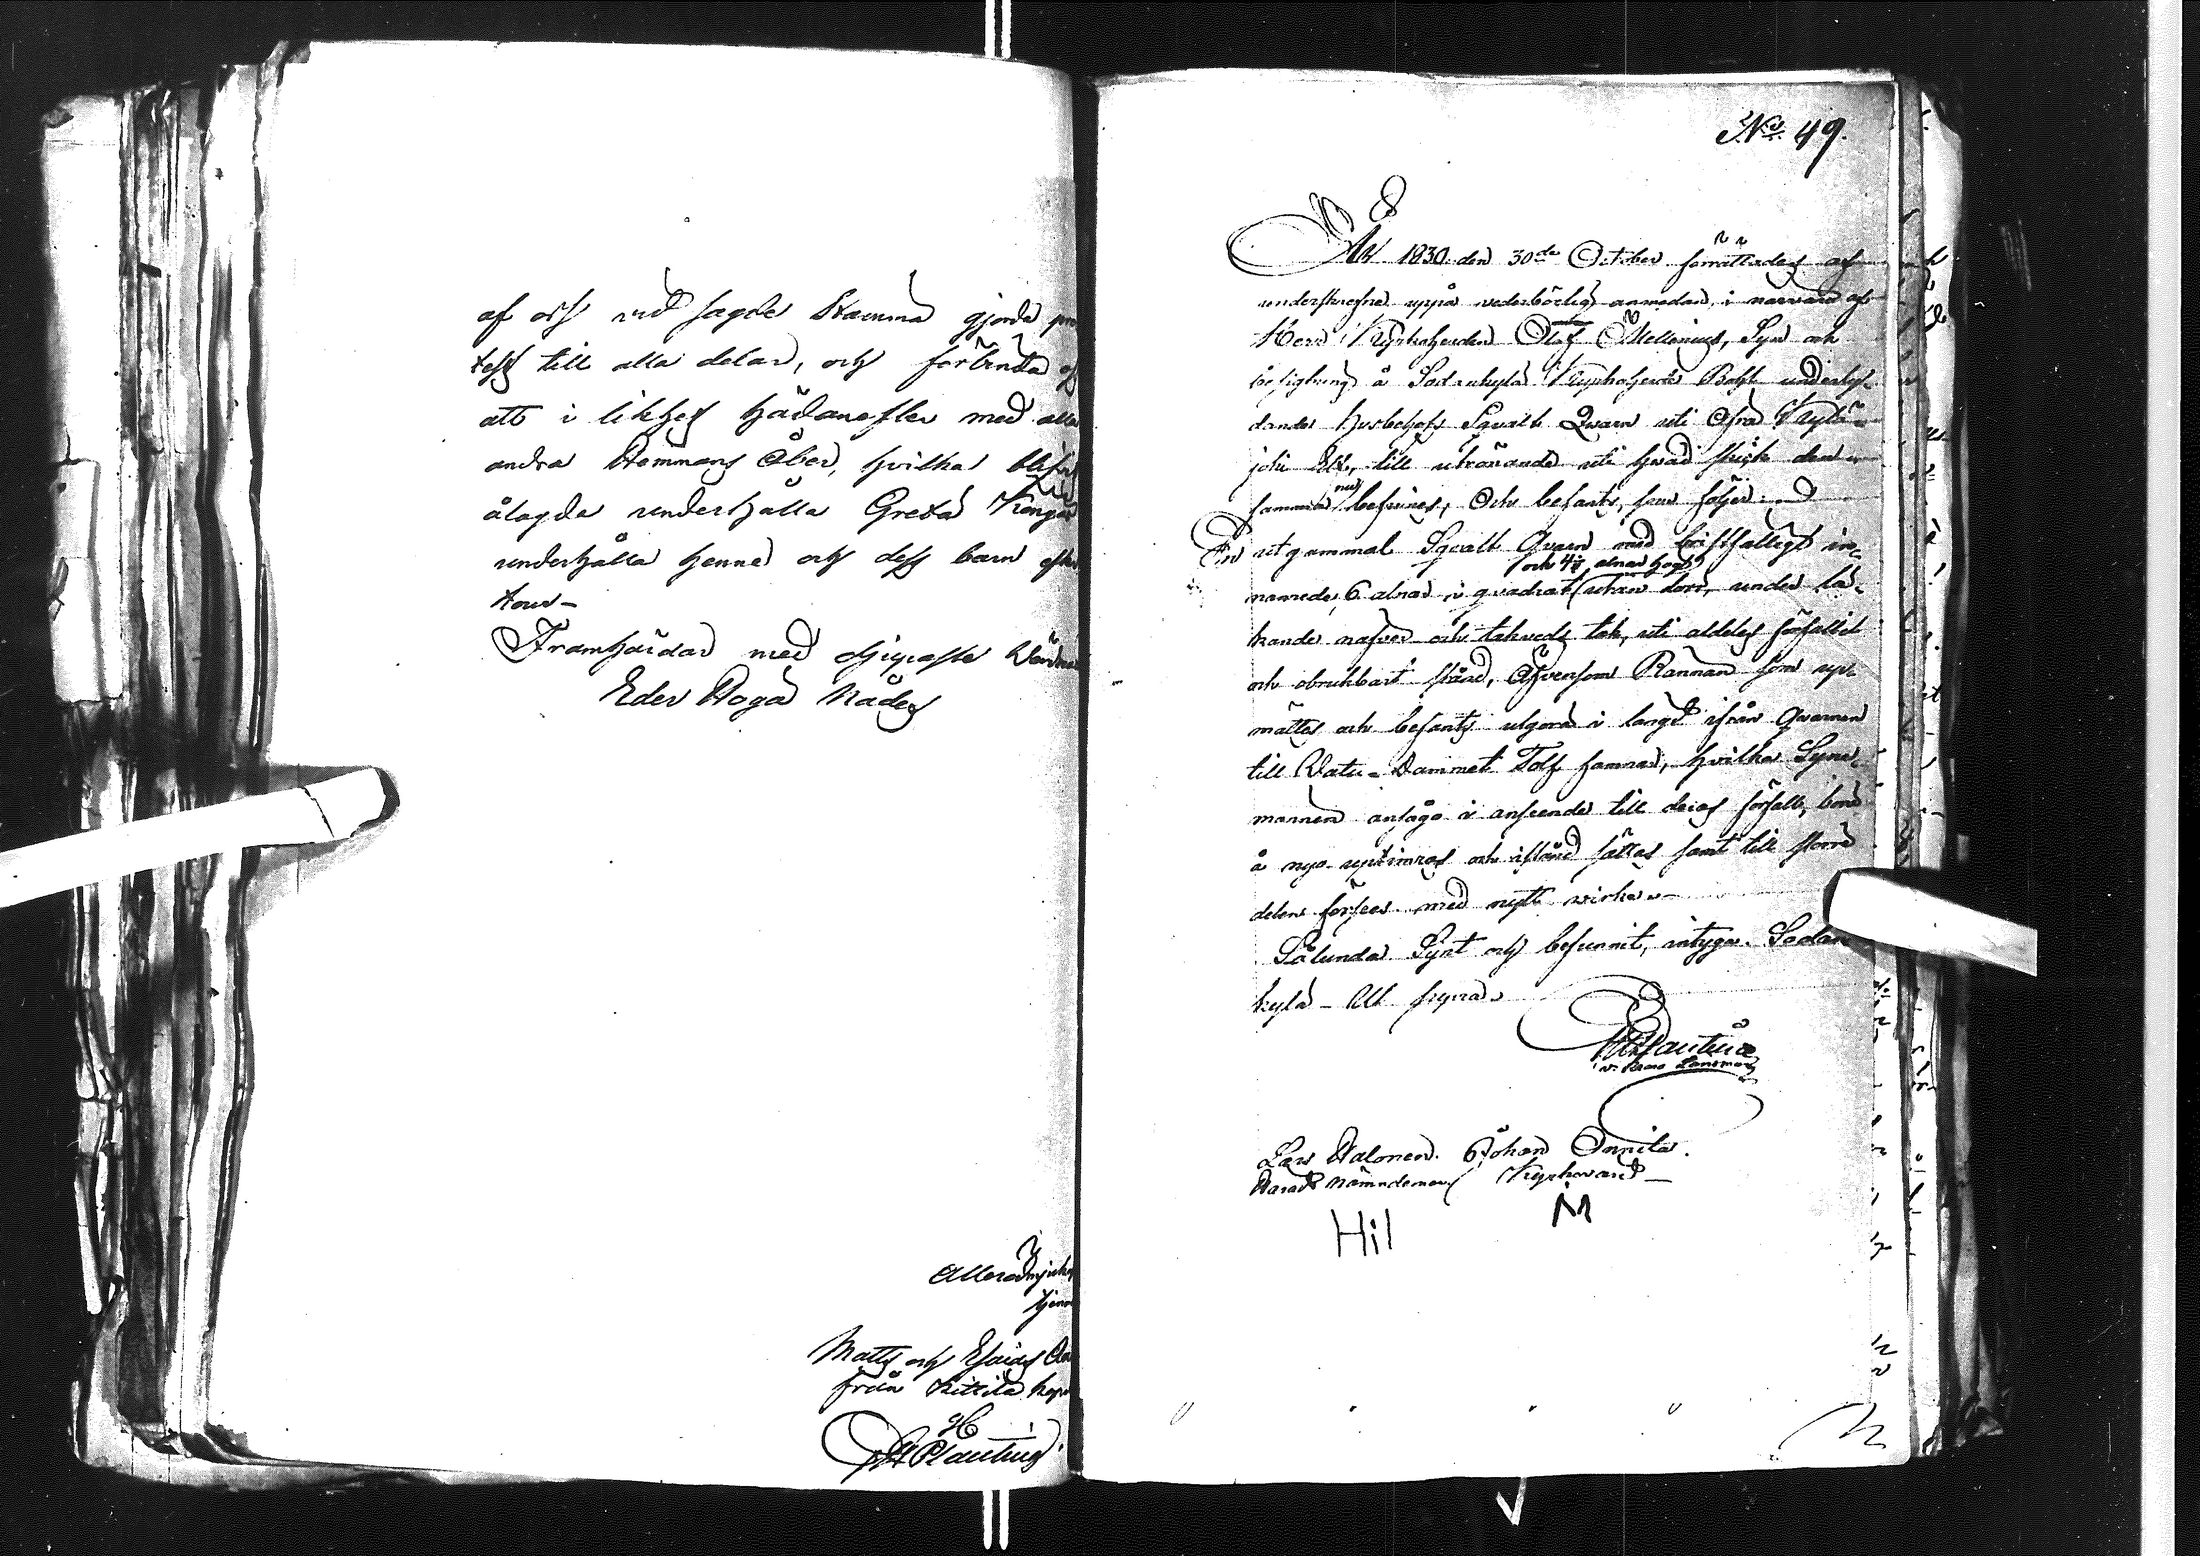 af oss vid sagde Stämma gjorda pro
test till alla delar, och förbinda oss
att i likhet hädanefter med alla
andra Hemmans Åboer, hvilka blifvit
ålagda underhålla Greta
underhålla henne och dess barn efter
tour-
Framhärdar med djupaste Vördnad
Eder Höga Nådes
Allerödmjukaste
tjenare
Matts och Esaias
från Kittilä
HPlanting
No 49.
År 1830 den 30de October förrättades af
underskrefne uppå vederbörlig anmodan, i närvaro af
Herr Kyrkoherden Olof Mellenius, Syn och
besigtning å Sodankylä Kyrkoherde Bohl underly-
dande husbehofs Squalt Qvarn uti
joki Elf, till utrönande uti hvad skick den-
samma nu befinnes, Och befants, som följer:
En utgammal Squalt Qvarn med bristfälligt in-
namrede, 6 alnar i qvadrat och 4½ alnar hög utan dörr, under lä-
kande näfver och takveds tak, uti aldeles förfallit
och obrukbart stånd, Äfvensom Rännan som upp-
mättes och befants utgöra i längd ifrån Qvarnen
till Vatu-Dammet Tolf famnar, hvilka Syne-
männen ansågo i anseende till deras förfall, böra
å nyo uptimras och istånd sättas samt till större
delen förses med nytt virke.
Sålunda Synt och befunnit, intyga. Sodan
kylä - Ut supra.
HPlantin
v. Krono Länsman
Lars Halonen. Johan Onnela.
Härads Nämndeman Kyrkovärd
Hil M